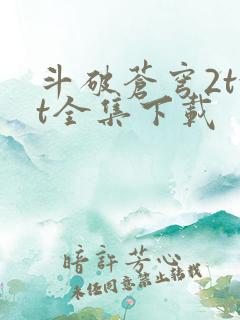 斗破蒼穹2t
t全集下載
暗許芳心
未经同意禁止转载